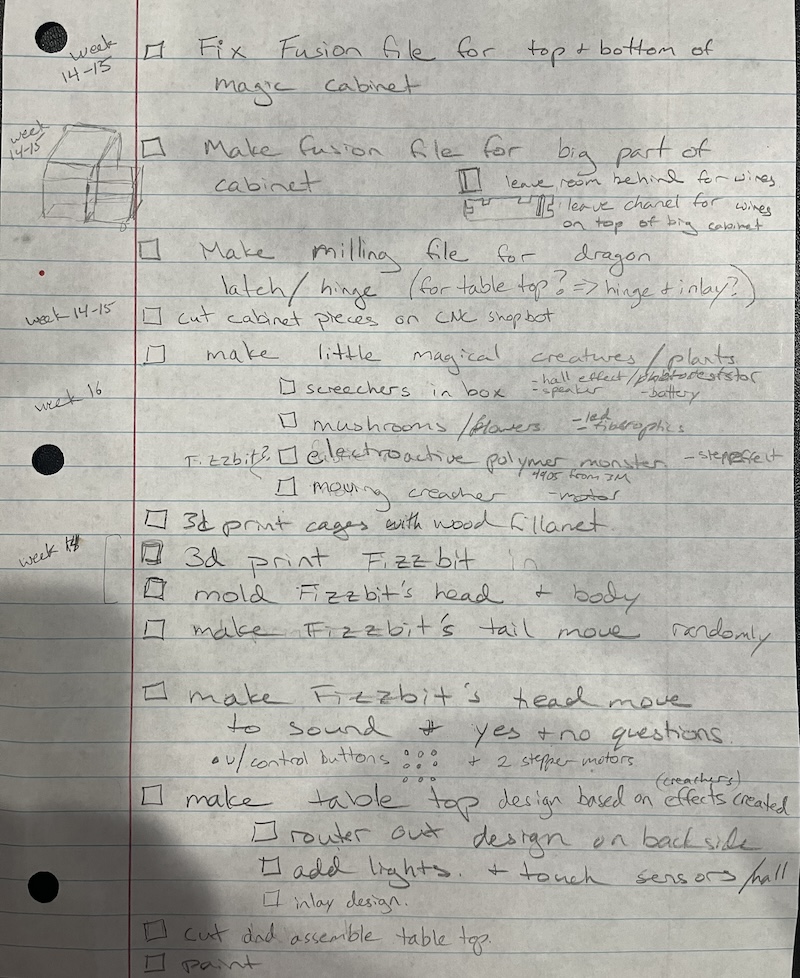 week
14-15
Fix Fusion file for top + bottom of
magic cabinet
week
14-15
Make fusion file for big part of
cabinet
leave room behind for wires
leave chanel for wires
on top of big cabinet
Make milling file for dragon
latch/hinge (for table top? => hinge + inlay?)
week 14-15
cut cabinet pieces on CNC shopbot
make little magical creatures/plants
week 16
screechers in box
-hall effect/
-speaker -battery
mushrooms/flowers
-led
-fiberoptics
Fizzbit?
electroactive polymer monster
4905 from 3M
moving creacher -motor
3d print cages with wood fillanet
week
3d print Fizzbit in
mold Fizzbit's head + body
make Fizzbit's tail move randomly
make Fizzbit's head move
to sound yes + no questions
w/control buttons + 2 stepper motors
(creachers)
make table top design based on effects created
router out design on backside
add lights. + touch sensors/hall
inlay design.
cut and assemble table top.
paint